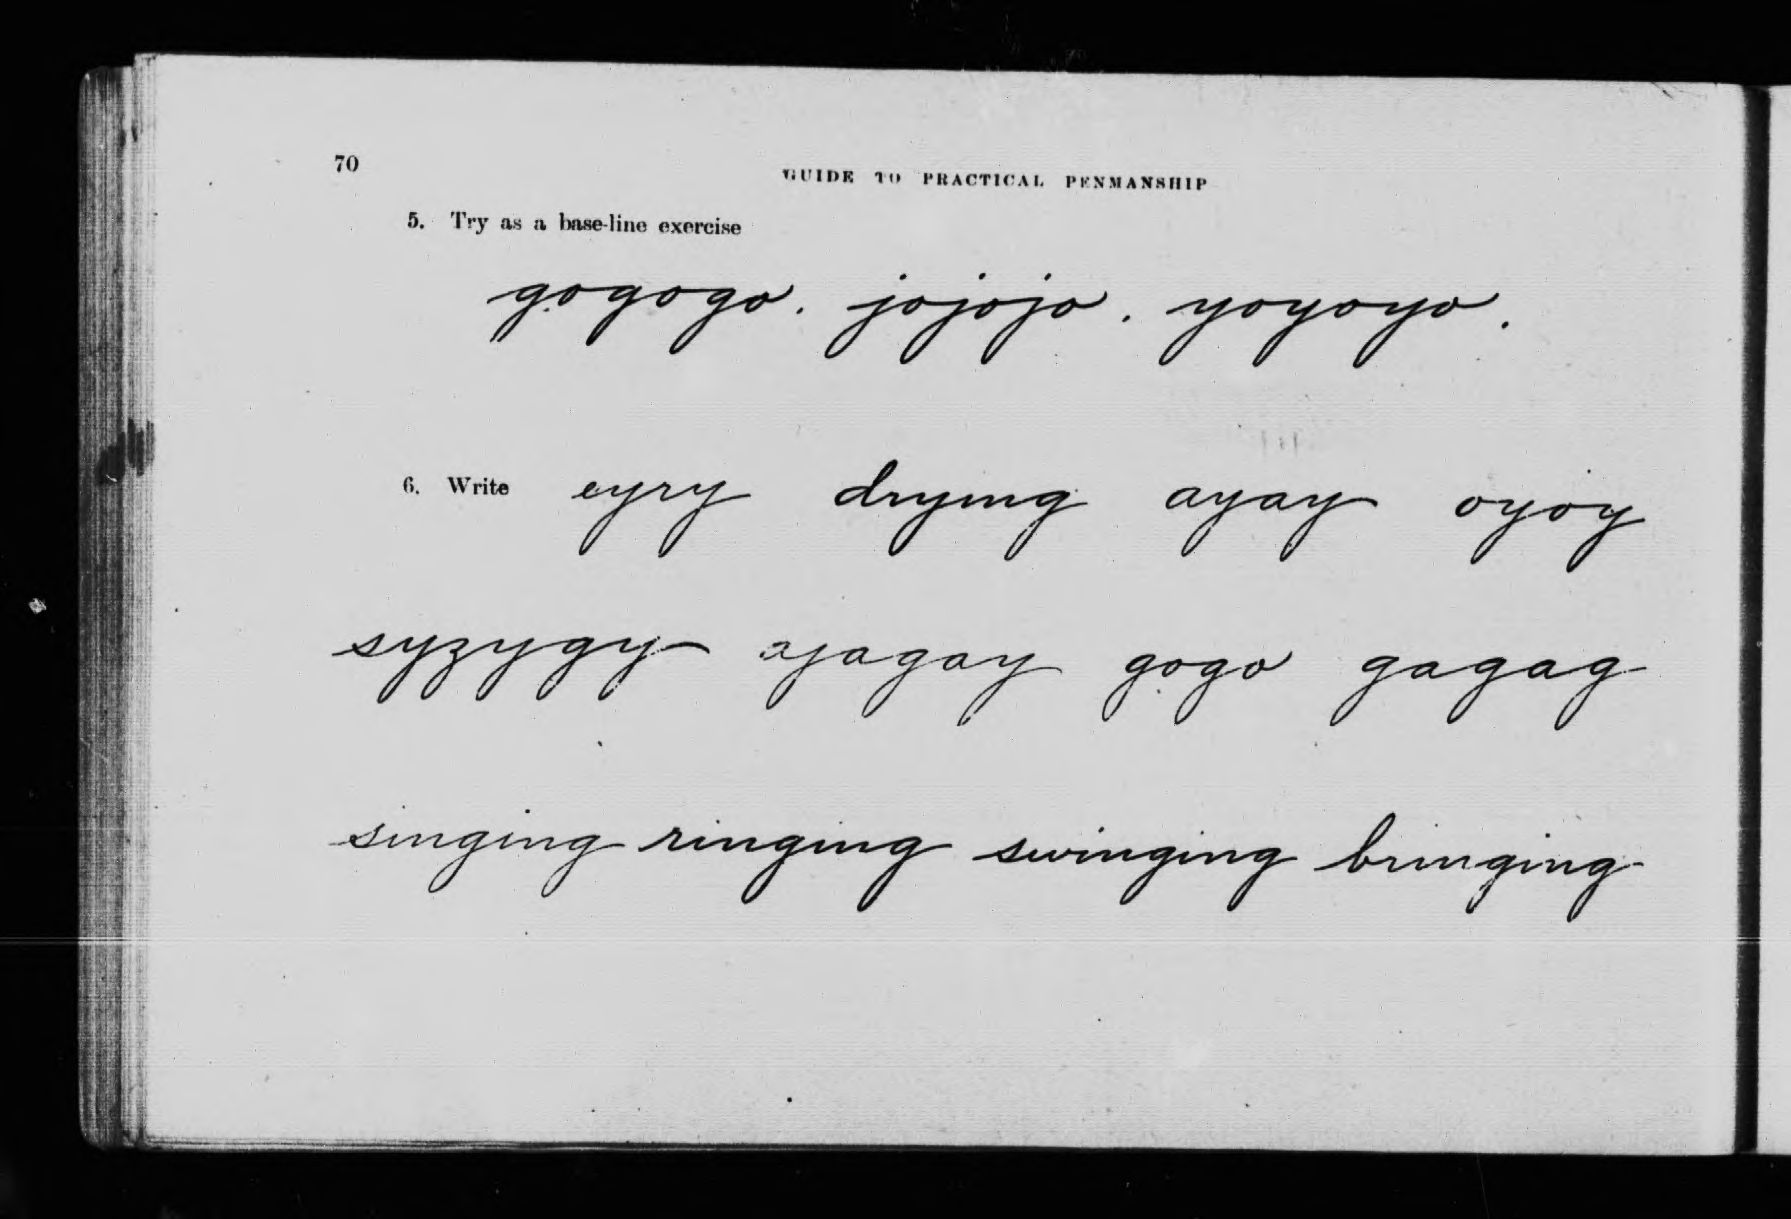 70
GUIDE TO PRACTICAL PENMANSHIP
5. Try as a base-line exercise
gogogo. jojojo. yoyoyo.
6. Write eyry drying ayay oyoy
syzygy ajagay gogo gagag
singing ringing swinging bringing